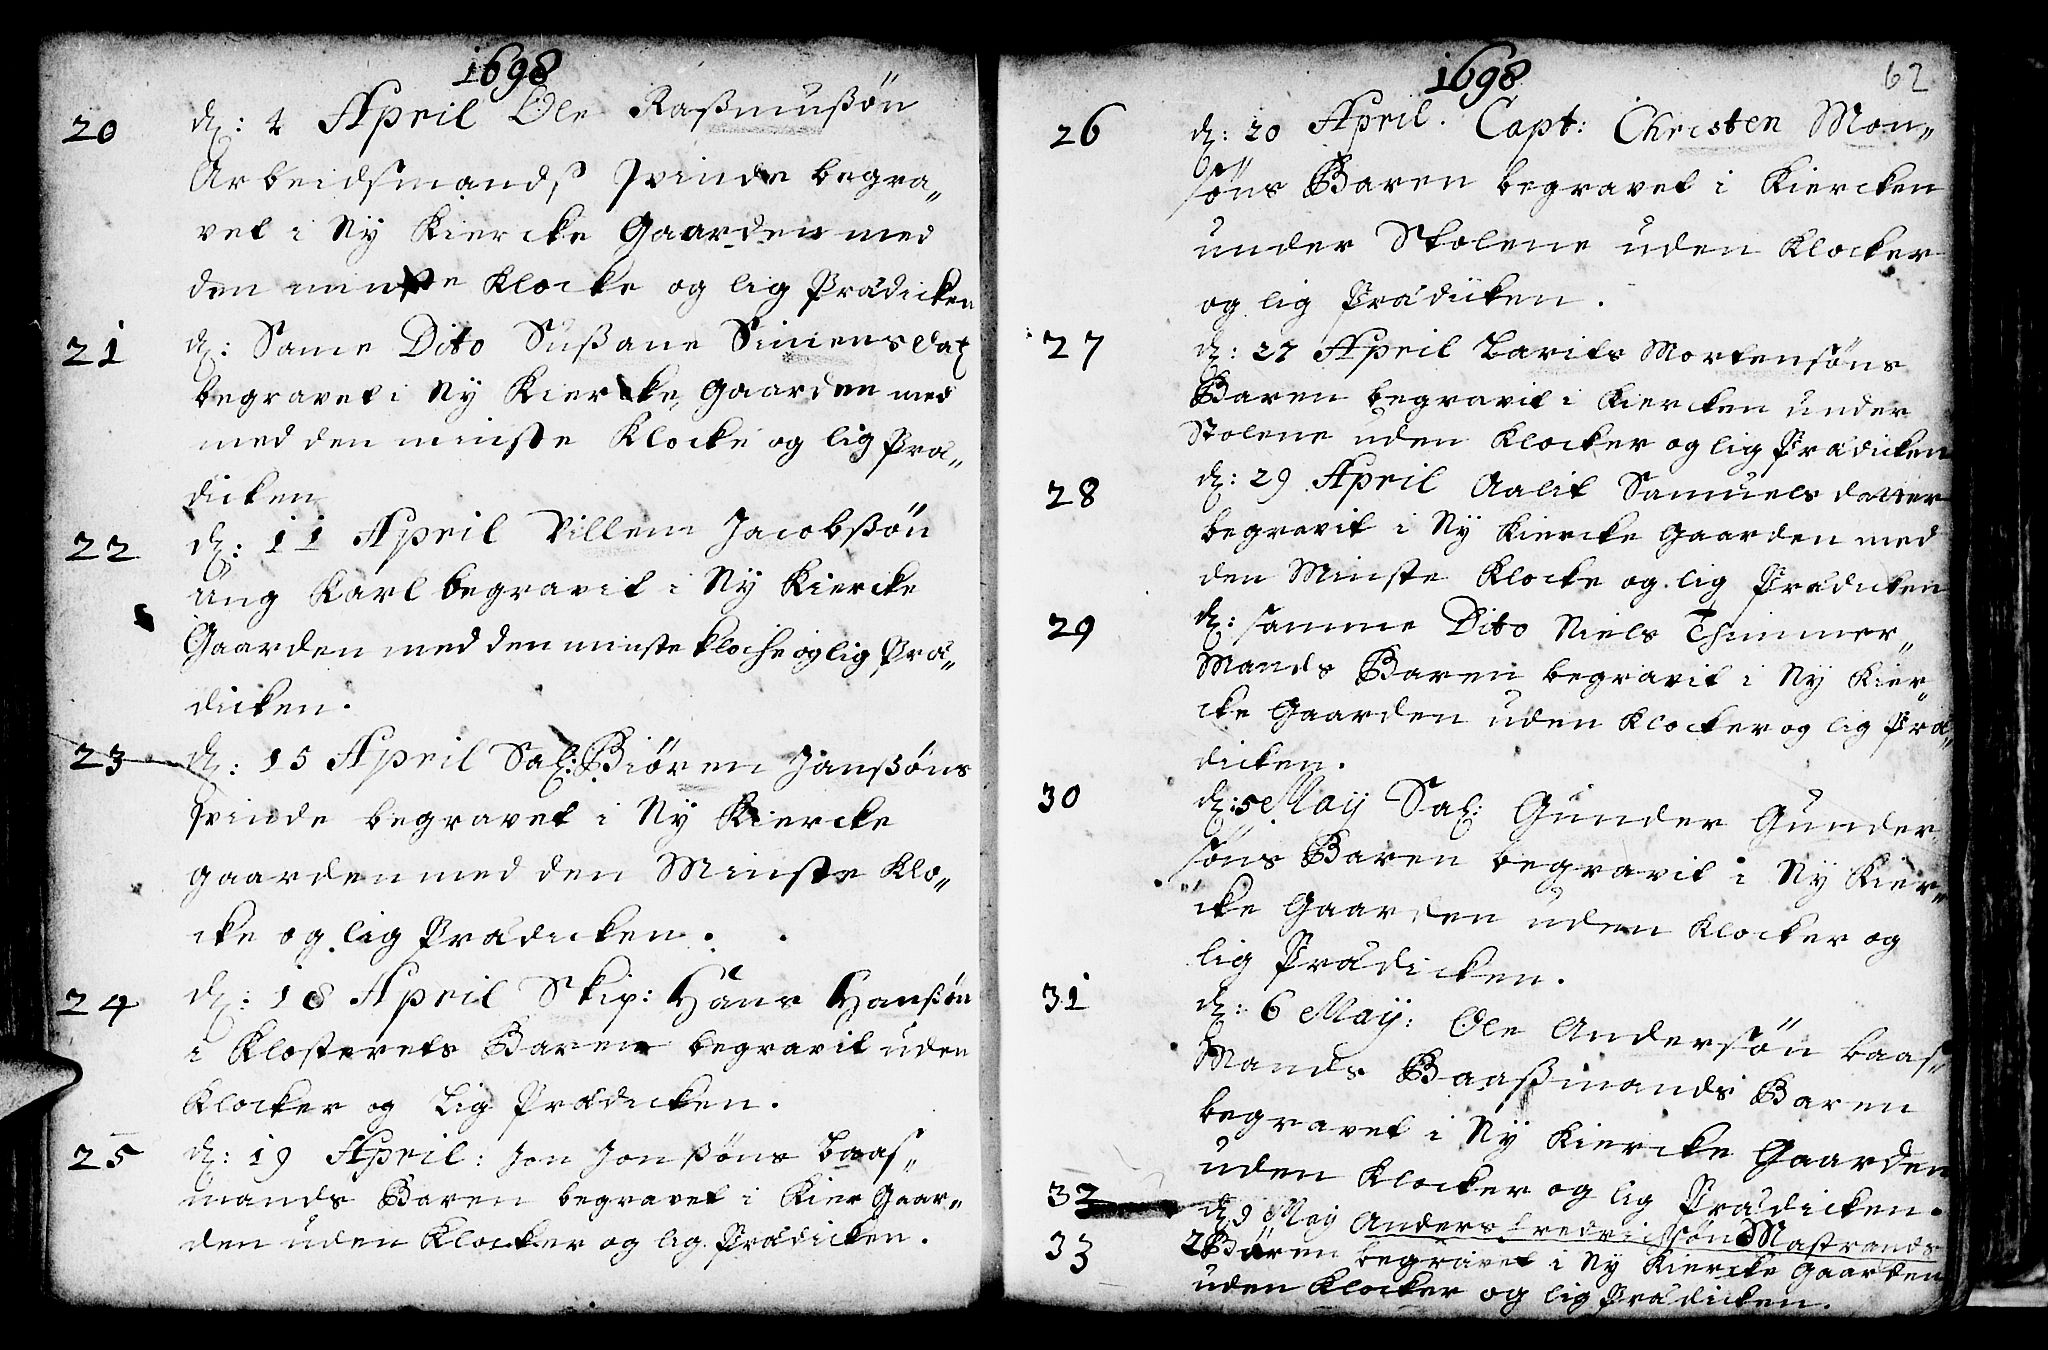 1698
20 d: 4 April Ole Raßmußøn
Arbeidsmands qvinde begra„
vet i Ny Kiercke Gaarden med
den minste Klocke og lig Prædicken
21 d: Same Dito Sußane Simens dat
begravet i Ny Kiercke, Gaarden med
med den minste Klocke og lig Præ„
dicken
22 d: 11 April Villem Jacobßøn
ung Karl begravit i Ny Kiercke
Gaarden med den minste klocke og lig Præ„
dicken.
23 d: 15 April Sal: Biören Janßøns
qvinde begravet i Ny Kiercke
gaarden med den Minste Klo„
cke og lig Prædicken.
24 d: 18 April Skip: Hans Hanßøn
i Klosterets Baren begravit uden
Klocker og Lig Prædicken.
25 d: 19 April: Jon Jonßøns Baas„
mands Baren begravet i Kier Gaar„
den uden Klocker og lig Prædicken.
1698 62
26 d: 20 April. Capt: Christen Mon„
søns Baren begravet i Kiercken
under Stolene uden Klocker
og lig Prædicken.
27 d: 27 April Larits Mortensøns
Baren begravit i Kiercken under
Stolene uden Klocker og lig Prædicken
28 d: 29 April Aalit Samuels datter
begravit i Ny Kiercke Gaarden med
den Minste Klocke og lig Prædicken
29 d: samme Dito Niels Thimmer„
Mands Baren begravit i Ny Kier
cke Gaarden uden Klocker og lig Præ„
dicken.
30 d: 5 Maij Sal: Gunder Gunder„
søns Baren begravit i Ny Kier„
cke Gaarden uden Klocker og
lig Prædicken.
31 d: 6 Maij: Ole Andersøn baas„
Mands Baaßmands Baren
begravet i Ny Kiercke Gaarden
uden Klocker og lig Prædicken.
32 d 9 Maij Anders Fredrichsøn Mastrands
33 2 Børen begravet i Ny Kiercke Gaarden
uden Klocker og lig Prædicken.